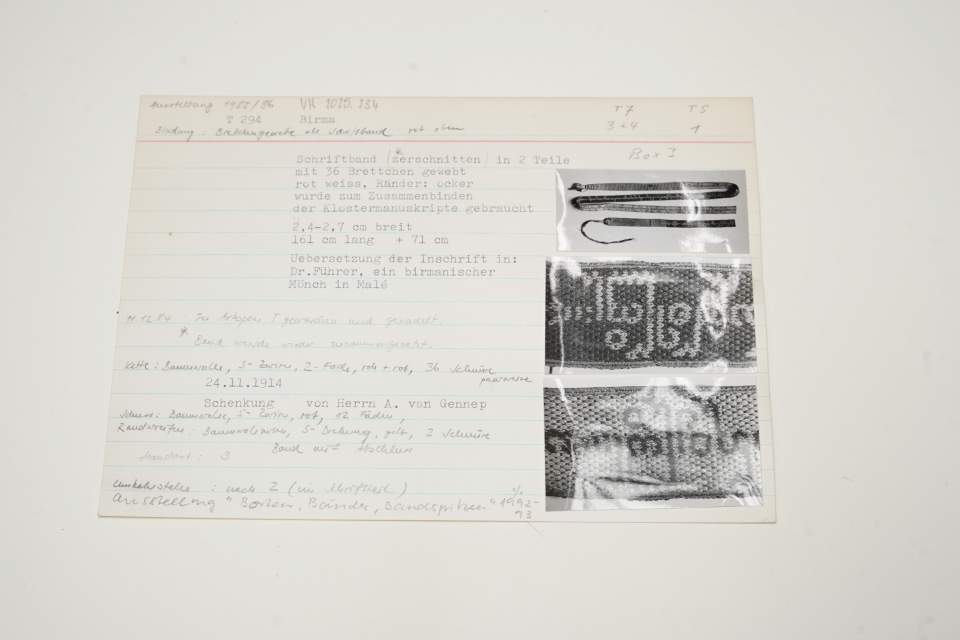 Ausstellung 1985/86 VH 1025.234 T7 T5
T 294 Birma 3+4 1
Bindung: Brettchengewebe als Schriftband rot oben
Box I
Schriftband |zerschnitten| in 2 Teile
mit 36 Brettchen gewebt
rot weiss, Ränder: ocker
wurde zum Zusammenbinden
der Klostermanuskripte gebraucht
2,4-2,7 cm breit
161 cm lang + 71 cm
Uebersetzung der Inschrift in:
Dr.Führer, ein birmanischer
Mönch in Malé
11.12.84 In Artapon I gewaschen und
* Band wurde wieder zusammengenäht.
Kette: Baumwolle, S-Zwirn, 2-Fach, rot + rot, 36 Schnüre
paarweise
24.11.1914
Schenkung von Herrn A. van Gennep
Schuss: Baumwolle, S-Zwirn, rot, 12 Fäden,
Randstreifen: Baumwollzwirn, S-Drehung, gelb, 2 Schnüre
Standort: 3 Band auf
Umkehrstelle: nach 2 (im Schriftteil)
Ausstellung "Borten, Bänder, Bandspitzen" 1992-
93